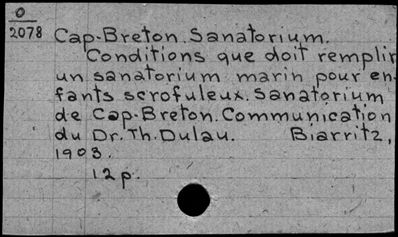 0
2078
Cap-Breton. Sanatorium.
Conditions que doit remplir
un sanatorium marin pour en-
fants scrofuleux. Sanatorium
de Cap-Breton. Communication
du Dr. Th. Dulau. Biarritz,
1903.
12 p.